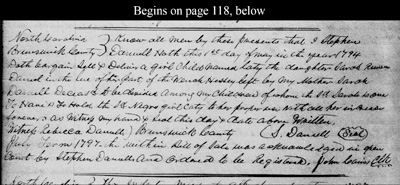 Begins on page 118, below
North Carolina } Know all Men by these presents that I Stephen
Brunswick County } Daniell Hath this 1st day of May in the year 1794
Doth Bargain Sell & Deliver a girl Child named Caty the daughter Sarah
Daniell in the of the part of the Negroes left by my Mother Sarah
Daniell Deceasd to be devided Among my Children of whom the sd Sarah is one
To Have & To Hold the sd Negro girl Caty to her proper use with all her increase
forever as Witness my hand & Seal this day & date above Written
Witness Rebecca Daniell } Brunswick County S. Daniell (Seal)
July Term 1797. The within Bill of Sale was acknowledged in open
Court by Stephen Daniell And Ordered to be Registered. John Clk